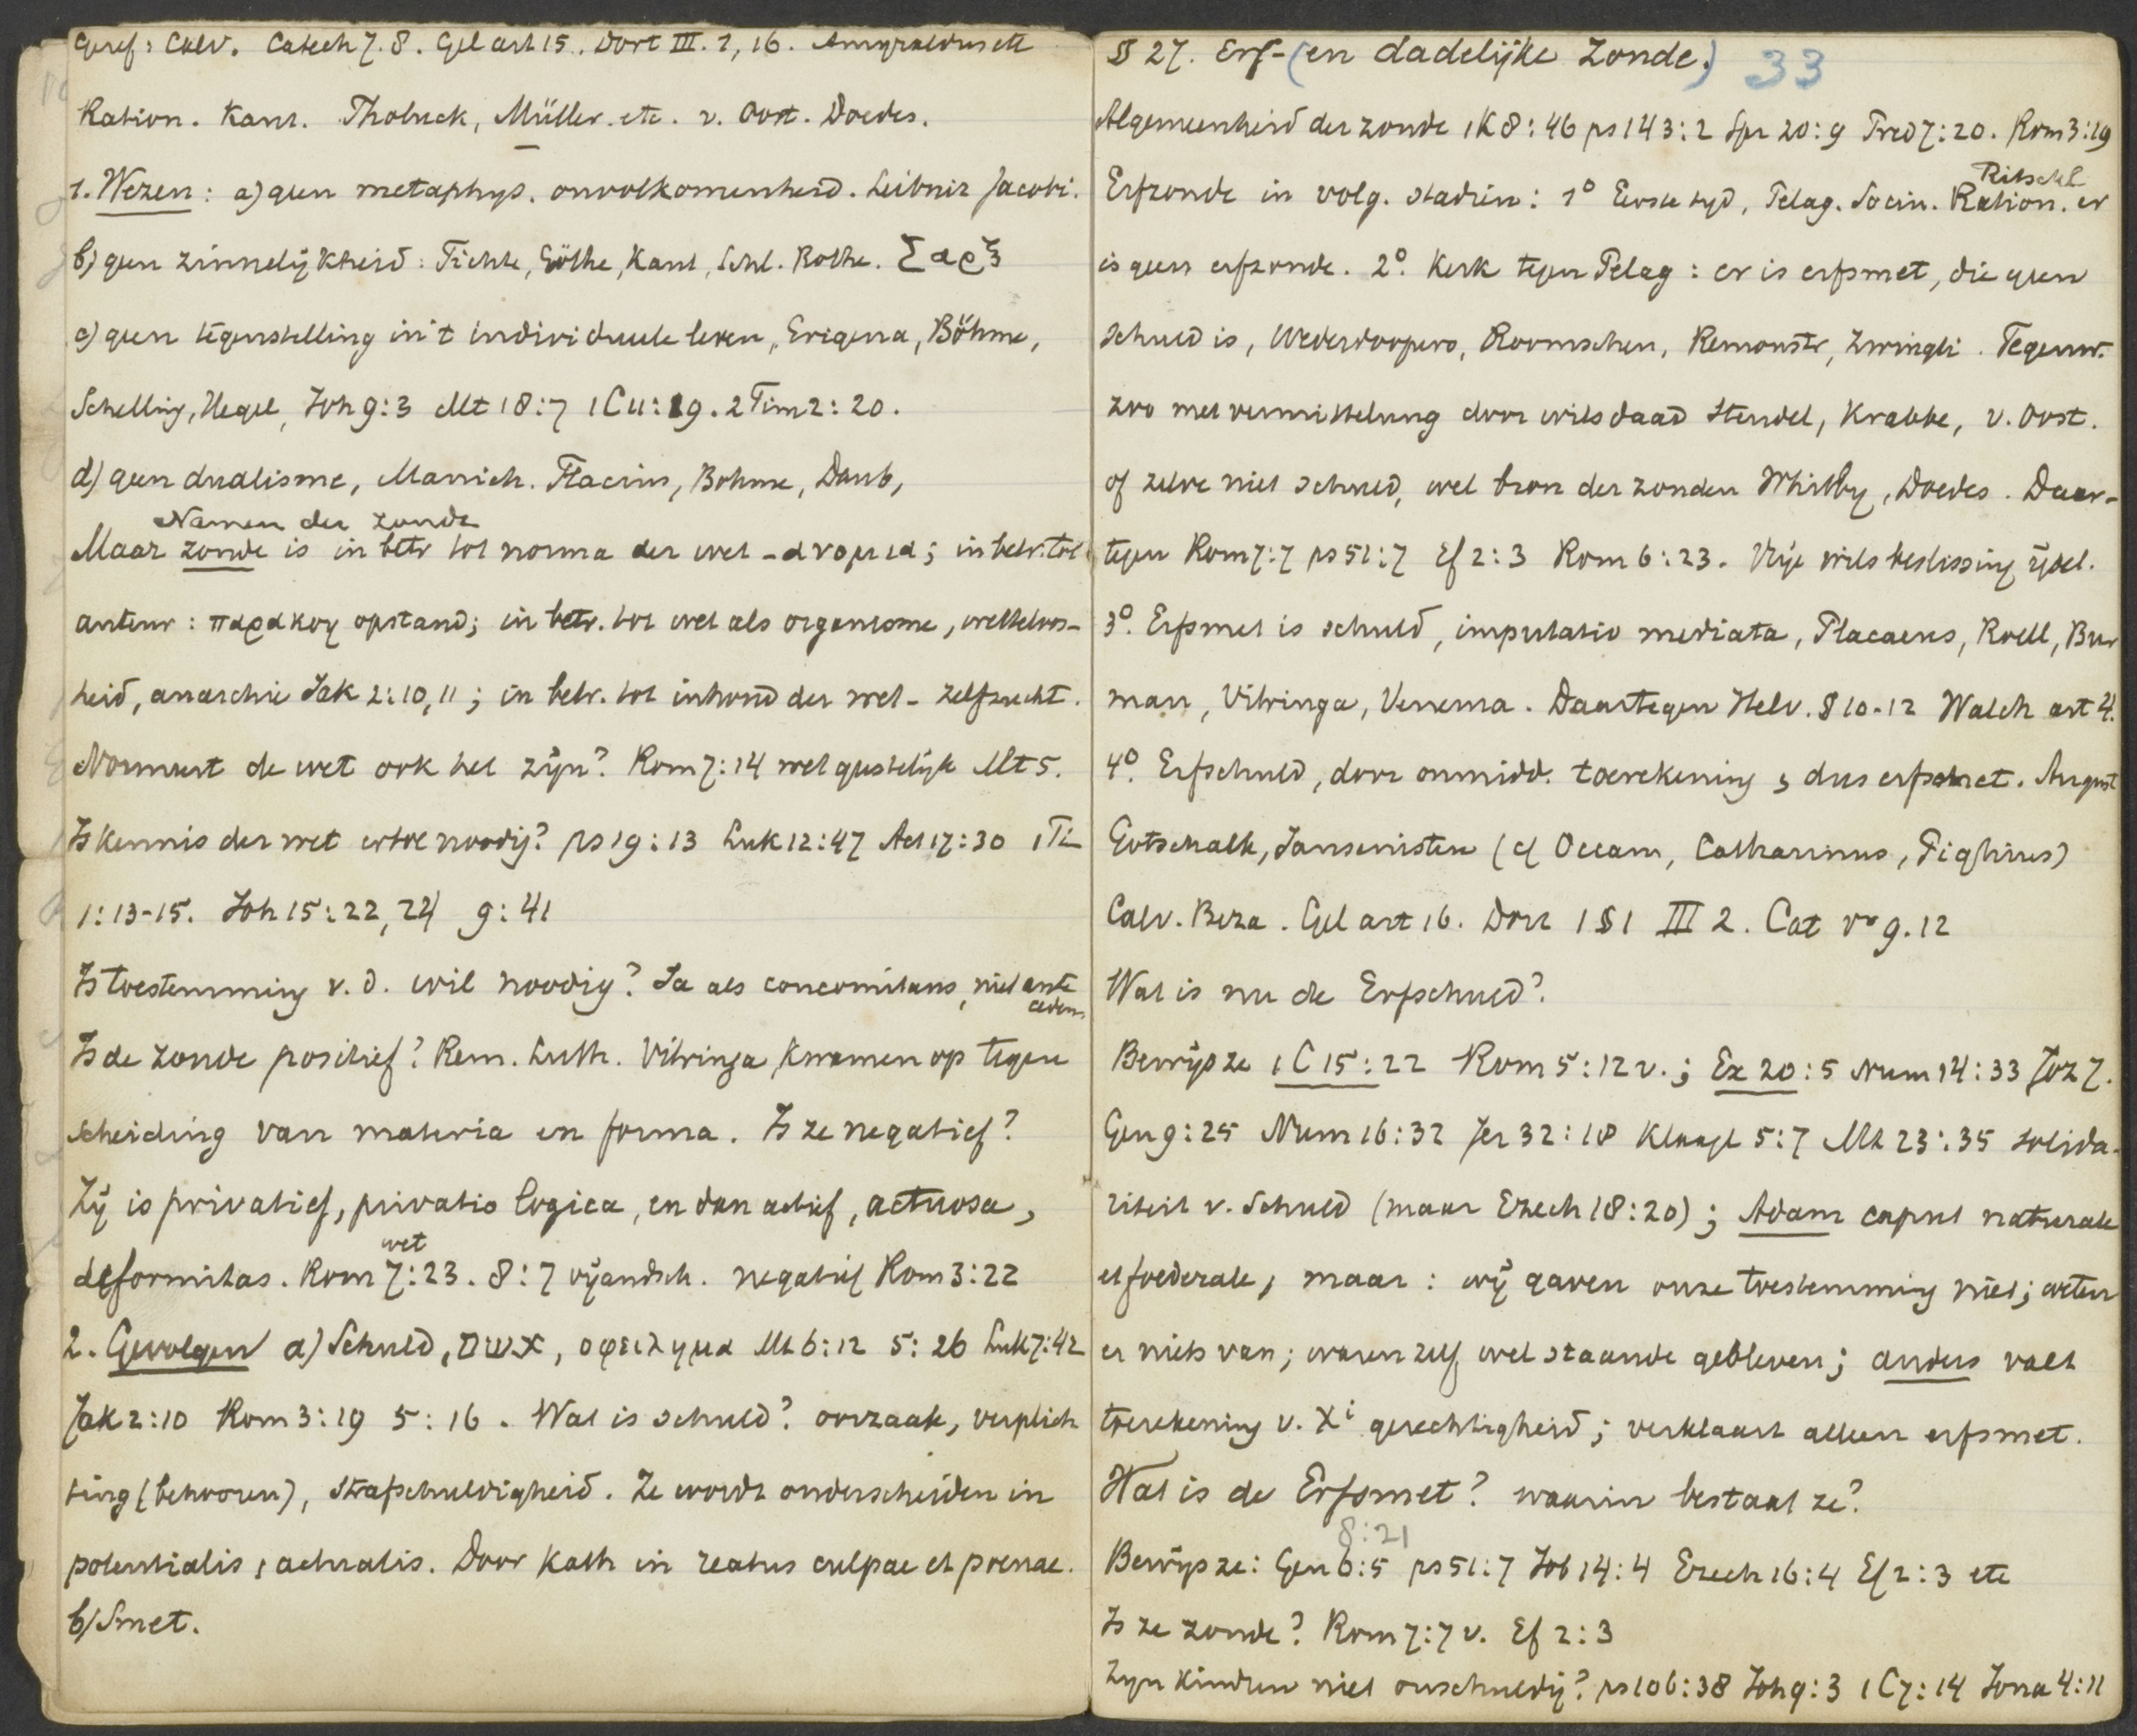 Geref: Calv. Catech 7. 8. Gel art 15. Dort III. 1, 16. Amyraldus etc
Ration. Kant. Tholuck, Müller. etc. v. Oost. Doedes.
1. Wezen: a) geen metaphys. onvolkomenheid. Leibniz Jacobi.
b) geen zinnelijkheid: Fichte, Göthe, Kant, Schl. Rothe. Σαρξ
c) geen tegenstelling in 't individueele leven, Erigena, Böhme,
Schelling, Hegel, Joh 9:3 Mt 18:7 1 C 11:19. 2 Tim 2:20.
d) geen dualisme, Manich. Flacius, Bohme, Daub,
Namen der zonde
Maar zonde is in betr tot norma der wet - ανομια; in betr. tot
auteur: παρακοη opstand; in betr. tot wet als organisme, wetteloos-
heid, anarchie Jak 2:10, 11; in betr. tot inhoud der wet - zelfzucht.
Normeert de wet ook het zijn? Rom 7:14 wet geestelijk Mt 5.
Is kennis der wet ertoe noodig? ps 19:13 Luk 12:47 Act 17:30 1 Ti
1:13-15. Joh 15:22, 24 9:41
Is toestemming v. d. wil noodig? Ja als concomitans, niet ante
cedens
Is de zonde positief? Rem. Luth. Vitringa kwamen op tegen
scheiding van materia en forma. Is ze negatief?
Zij is privatief, privatio logica, en dan actief, actuosa,
deformitas. Rom 7:23. 8:7 vijandsch. negatief Rom 3:22
wet
2. Gevolgen a) Schuld, אשם, οφειλημα Mt 6:12 5:26 Luk 7:42
Jak 2:10 Rom 3:19 5:16. Wat is schuld? oorzaak, verplich
ting (behooren), strafschuldigheid. Ze wordt onderscheiden in
potentialis, actualis. Door Kath in reatus culpae et poenae.
b) Smet.
§ 27. Erf- (en dadelijke Zonde.) 33
Algemeenheid der zonde 1 K 8:46 ps 143:2 Spr 20:9 Pred 7:20. Rom 3:19
Ritschl
Erfzonde in volg. stadiën: 1° Eerste tijd, Pelag. Socin. Ration. er
is geen erfzonde. 2°. Kerk tegen Pelag: er is erfsmet, die geen
schuld is, Wederdoopers, Roomschen, Remonstr, Zwingli. Tegenw.
zoo met vermittelung door wilsdaad Steudel, Krabbe, v. Oost.
of zelve niet schuld, wel bron der zonden Whitby, Doedes. Daar-
tegen Rom 7:7 ps 51:7 Ef 2:3 Rom 6:23. Vrije wilsbeslissing ijdel.
3°. Erfsmet is schuld, imputatio mediata, Placaeus, Roell, Bur
man, Vitringa, Venema. Daartegen Helv. § 10-12 Walch art 4.
4°. Erfschuld, door onmidd. toerekening, dus erfsmet. August
Gotschalk, Jansenisten (cf Occam, Catharinus, Pighius)
Calv. Beza. Gel art 16. Dort 1 § 1 III 2. Cat vr 9. 12
Wat is nu de Erfschuld?
Bewijs ze 1 C 15:22 Rom 5:12 v.; Ex 20:5 Num 14:33 Joz 7.
Gen 9:25 Num 16:32 Jer 32:18 Klaagl 5:7 Mt 23:35 solida-
riteit v. Schuld (maar Ezech 18:20); Adam caput naturale
et foederale, maar: wij gaven onze toestemming niet; weten
er niets van; waren zelf wel staande gebleven; anders valt
toerekening v. Xi gerechtigheid; verklaart alleen erfsmet.
Wat is de Erfsmet? waarin bestaat ze?
8:21
Bewijs ze: Gen 6:5 ps 51:7 Job 14:4 Ezech 16:4 Ef 2:3 etc
Is ze zonde? Rom 7:7 v. Ef 2:3
Zijn kinderen niet onschuldig? ps 106:38 Joh 9:3 1 C 7:14 Jona 4:11